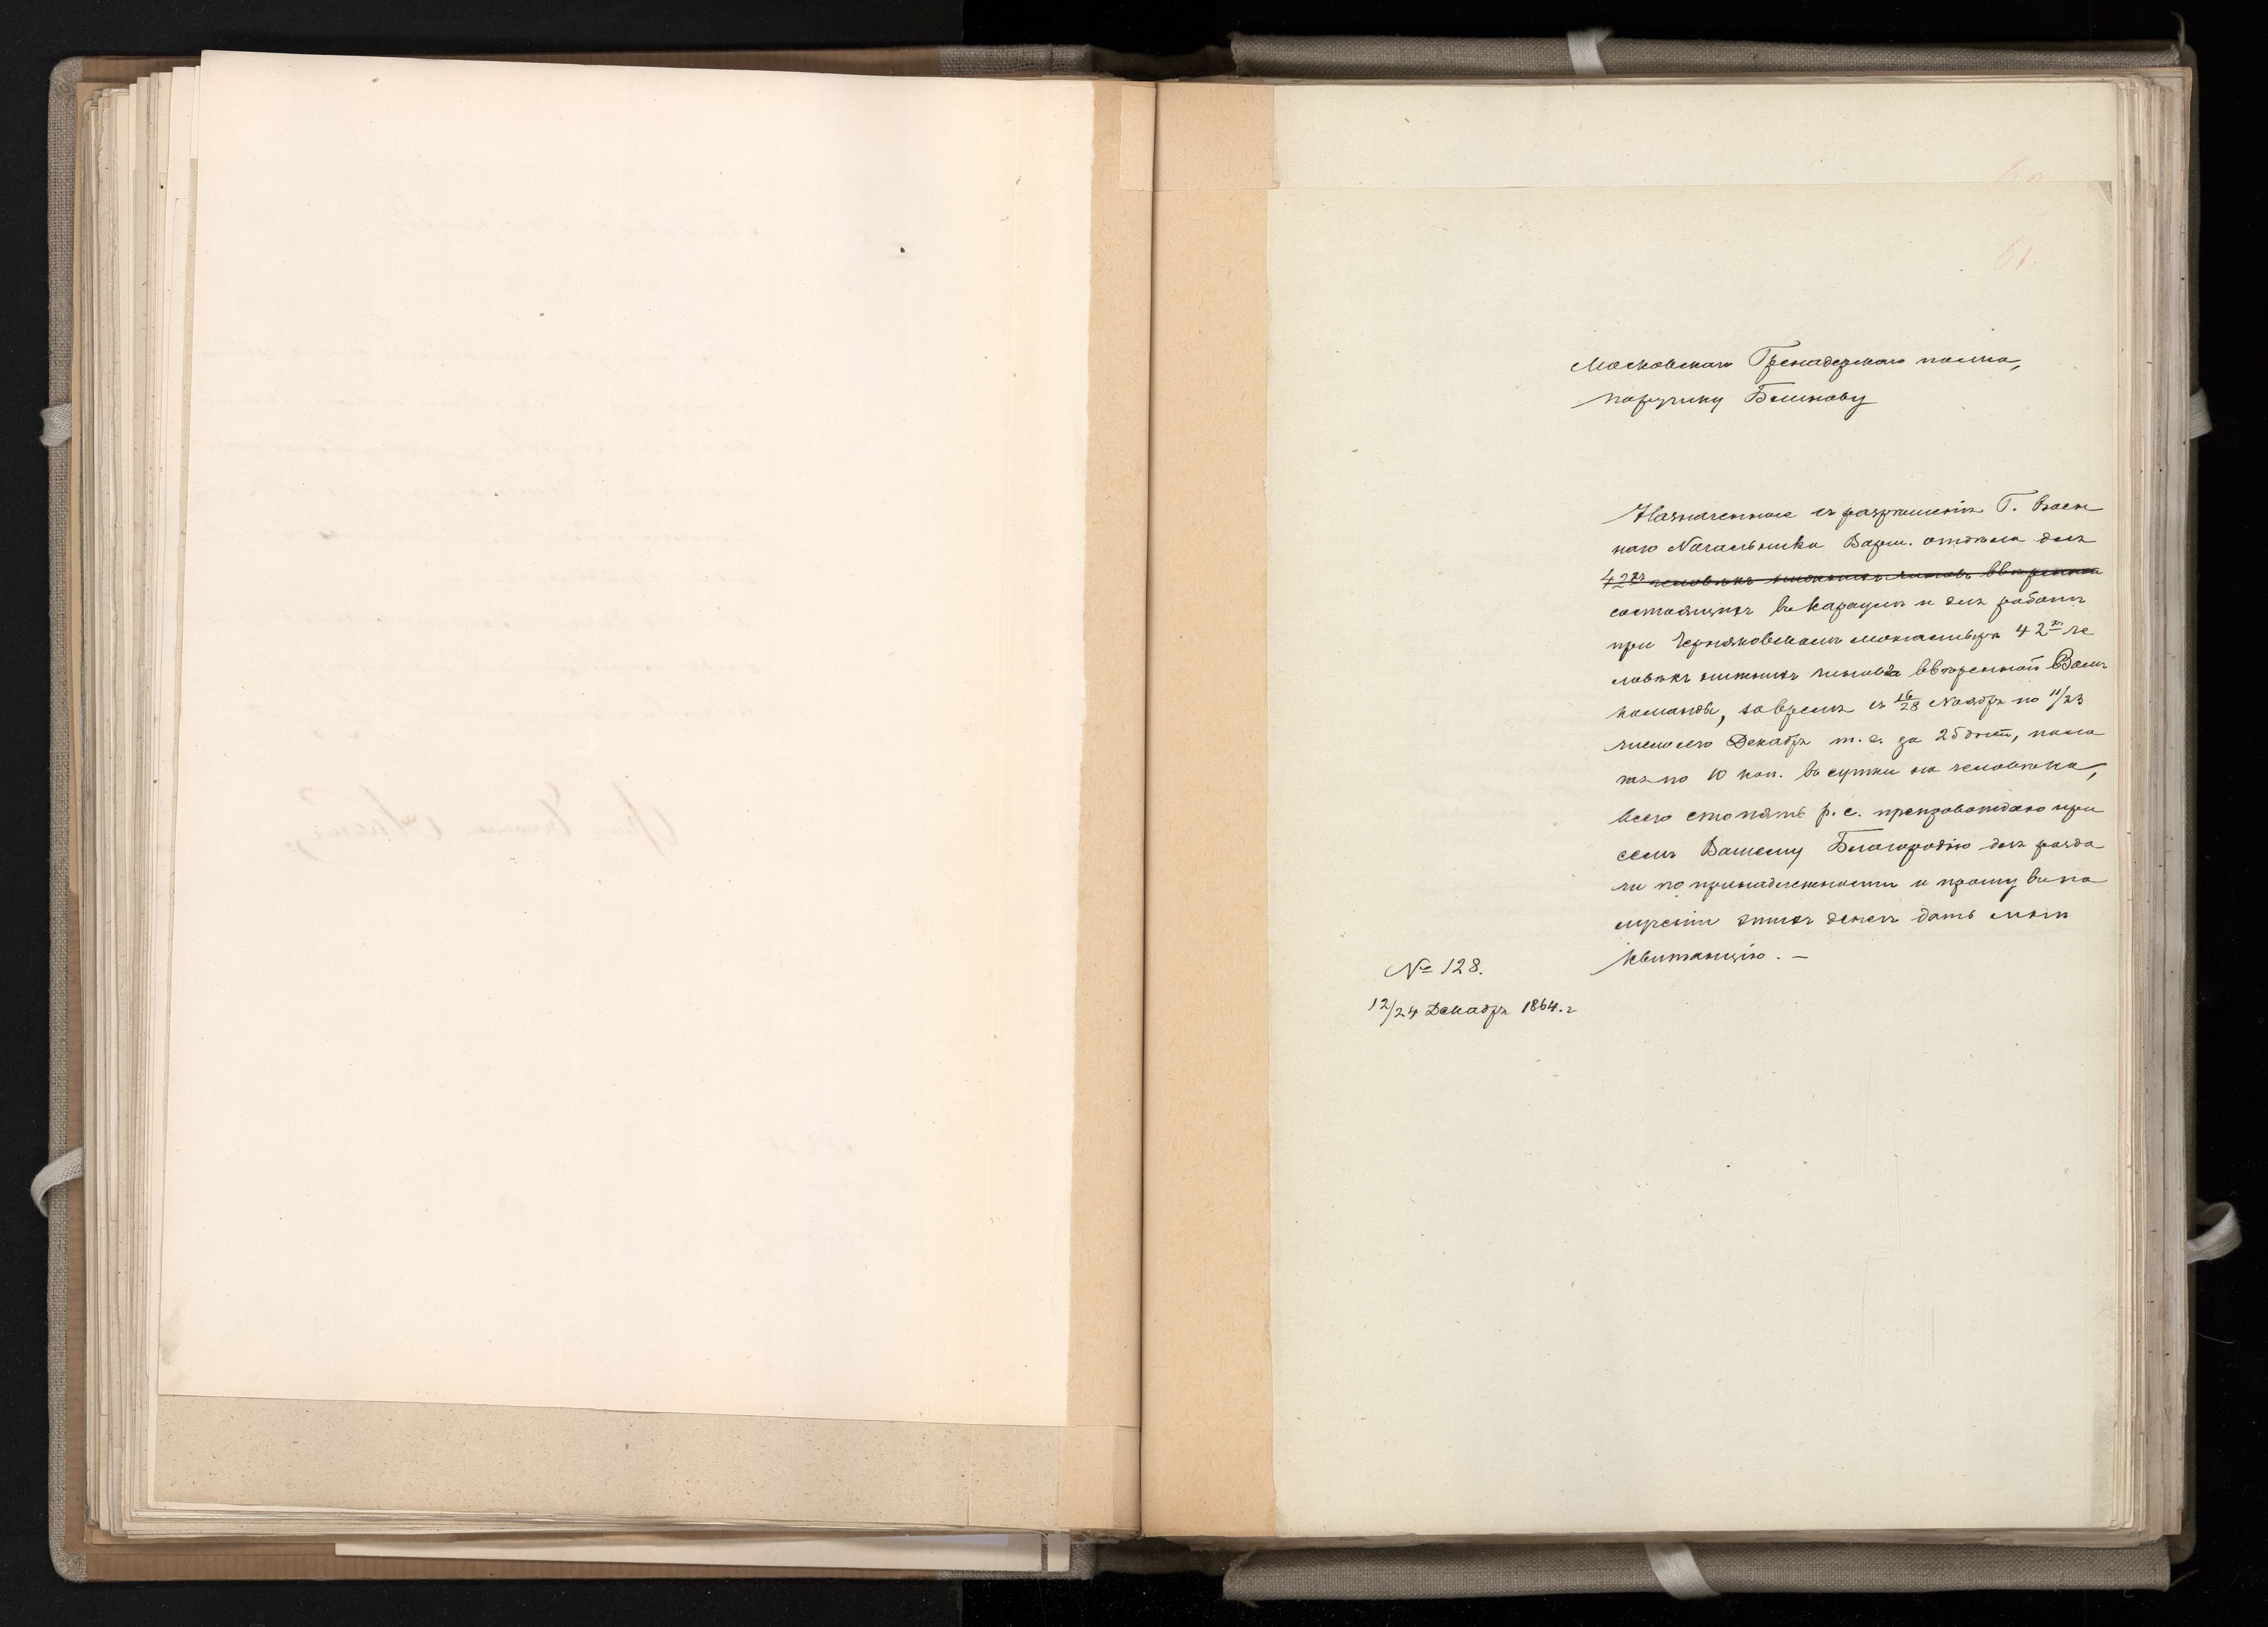 61.
Московскаго Гренадерскаго полка,
поручику Блинову
Назначенные съ разрѣшенія Г. Воен
наго Начальника Варш. отдѣла для
42хъ человѣкъ нижнихъ чиновъ ввѣренной
состоящихъ въ караулѣ и для работъ
при Черняковскомъ монастырѣ 42хъ че
ловѣкъ нижнихъ чиновъ ввѣренной Вамъ
команды, за время съ 16/28 Ноября по 11/23
число сего Декабря т. г. за 25 дней, пола
гая по 10 коп. въ сутки на человѣка,
всего сто пять р. с. препровождаю при
семъ Вашему Благородію для разда
чи по принадлежности и прошу въ по
лученіи этихъ денегъ дать мнѣ
квитанцію. —
№ 128.
12/24 Декабря 1864. г